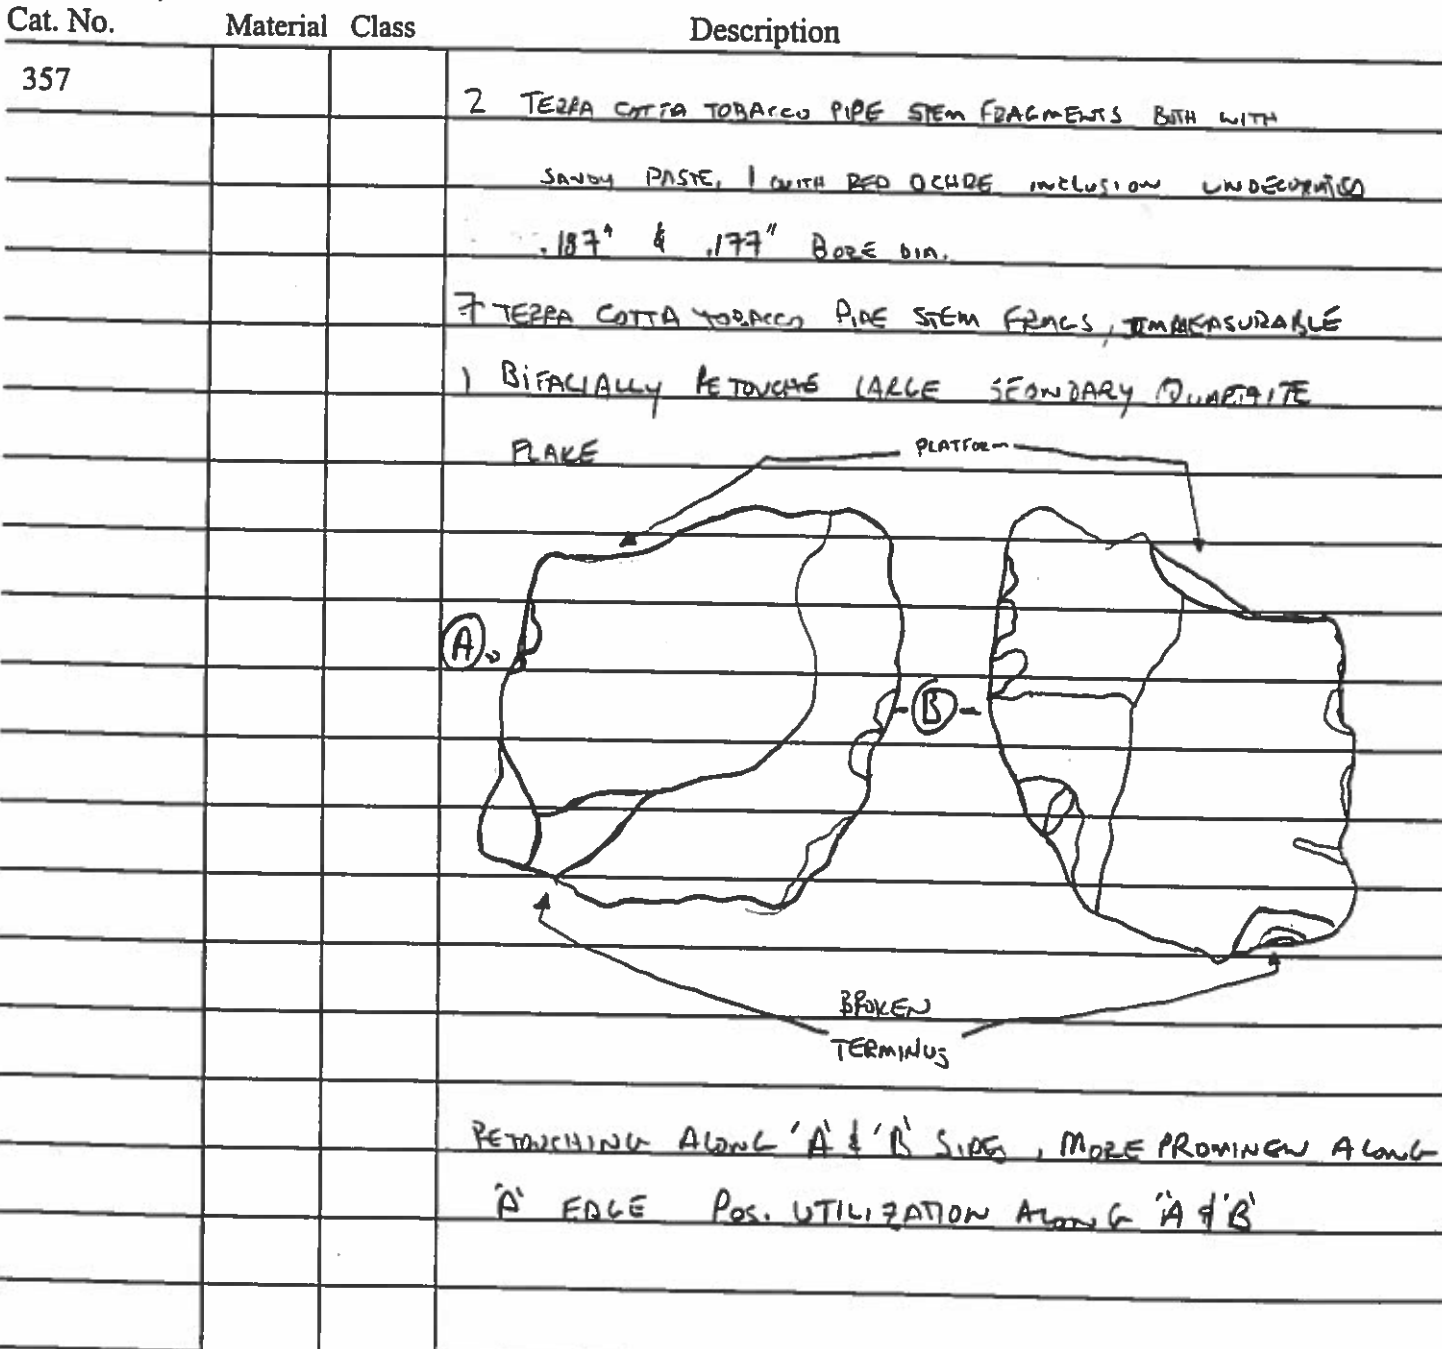 Cat. No. Material Class Description
357
2 TERRA COTTA TOBACCO PIPE STEM FRAGMENTS BOTH WITH
SANDY PASTE, 1 WITH RED OCHRE INCLUSION UNDECORATED
.187" & .177" BORE DIA.
7 TERRA COTTA TOBACCO PIPE STEM FRAGS, IMMEASURABLE
1 BIFACIALLY RETOUCHE LARGE SEONDARY QUARTZITE
FLAKE
PLATFORM
A
B
BROKEN
TERMINUS
RETOUCHING ALONG 'A' & 'B' SIDES, MORE PROMINEN ALONG
'A' EDGE POS. UTILIZATION ALONG 'A & 'B'